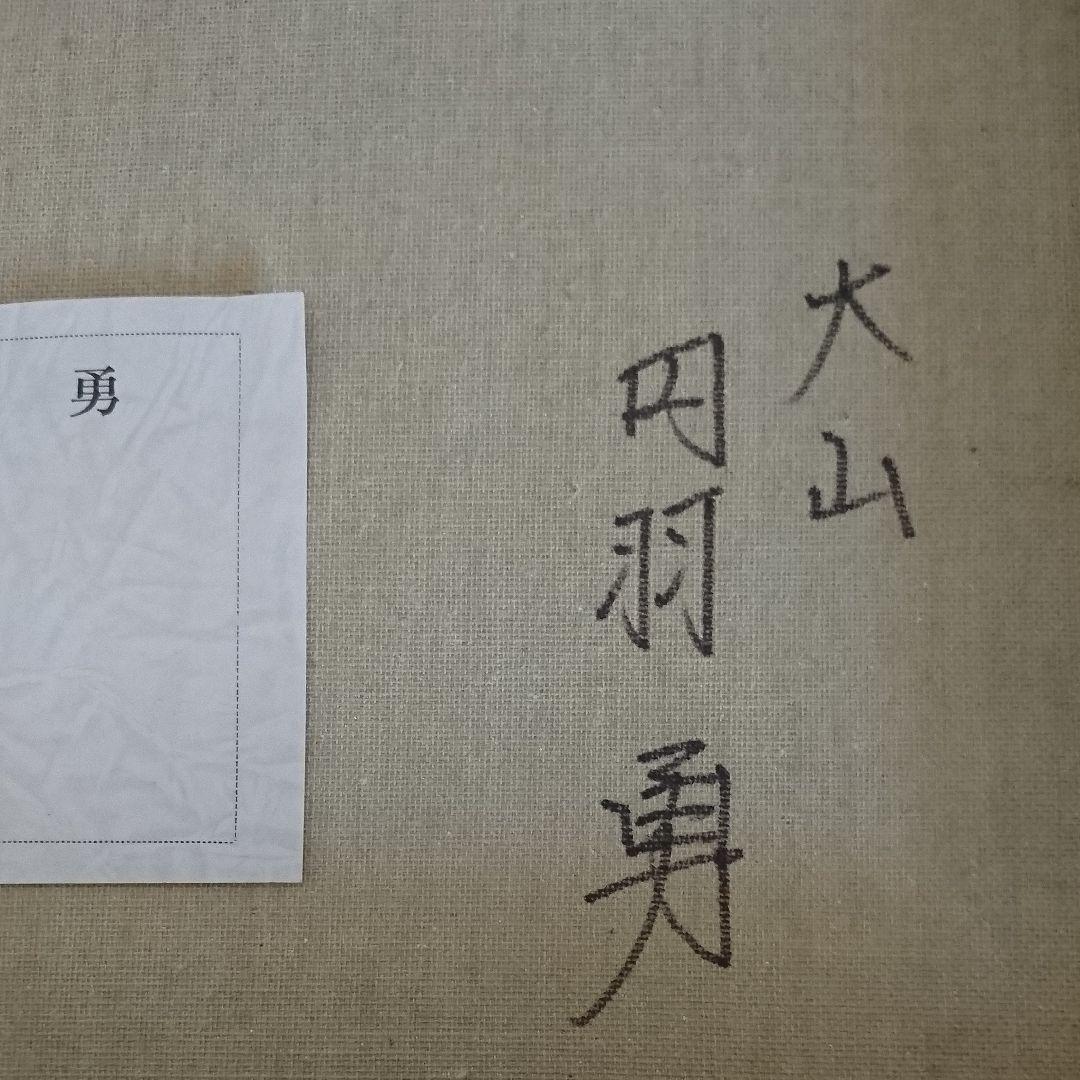 大山
円羽 勇
勇